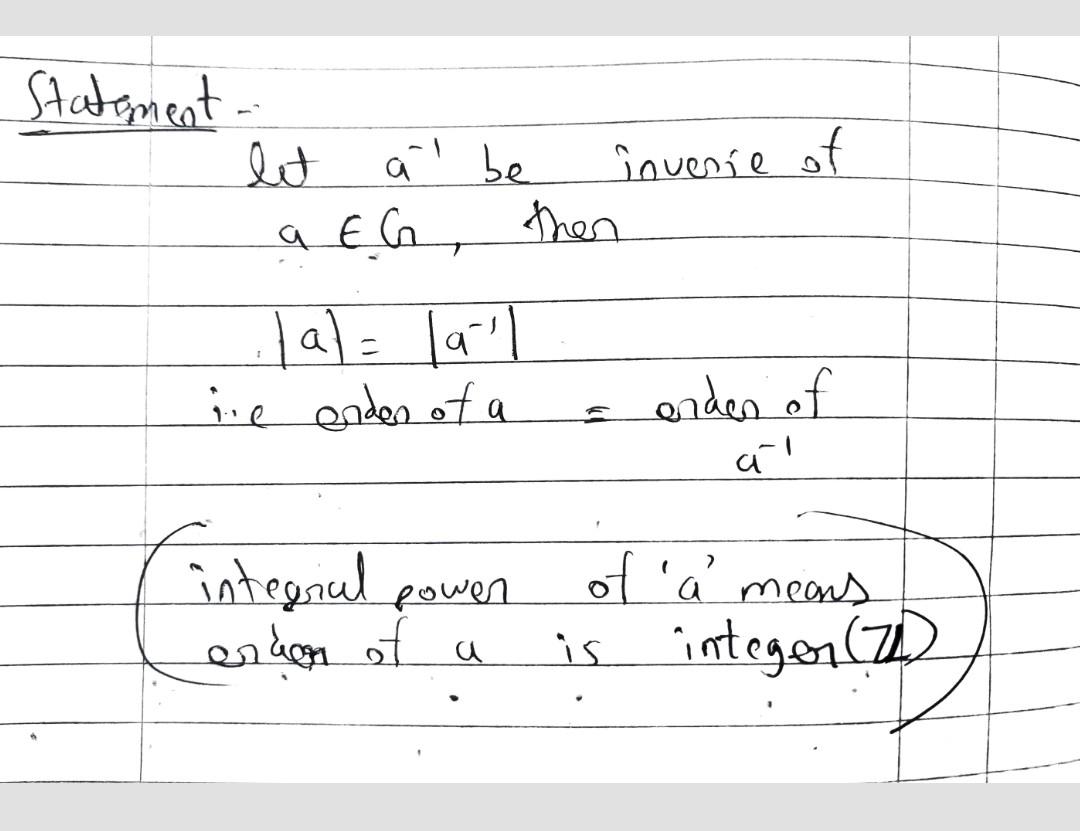 Statement -
let a⁻¹ be inverse of
a ∈ G, then
|a| = |a⁻¹|
i.e order of a = order of
a⁻¹
(integral power of 'a' means
order of a is integer(ℤ))